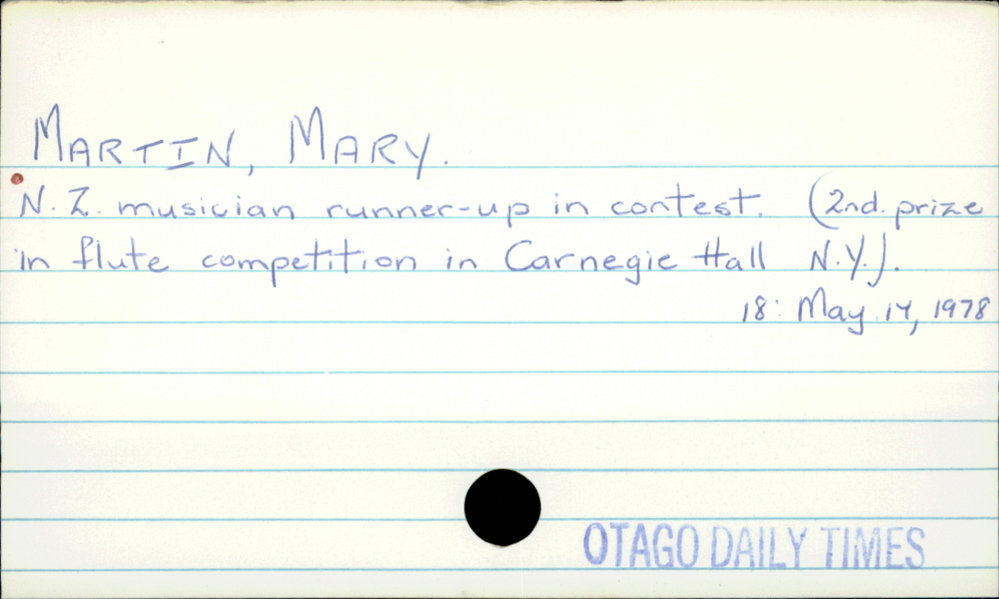 MARTIN, MARY.
N.Z. musician runner-up in contest. (2nd. prize
in flute competition in Carnegie Hall N.Y.).
18: May 14, 1978
OTAGO DAILY TIMES